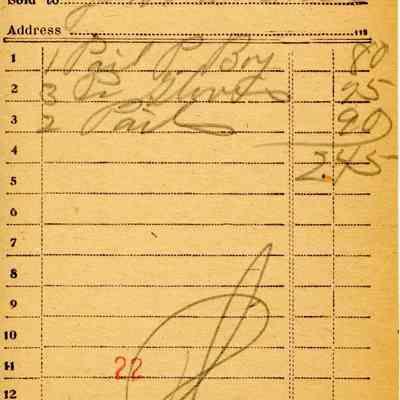 Sold to
Address
1 1 Pail P. Boy 80
2 3 Pr Gloves 75
3 2 Pails 90
4 2.45
5
6
7
8
9
10
11 22
12